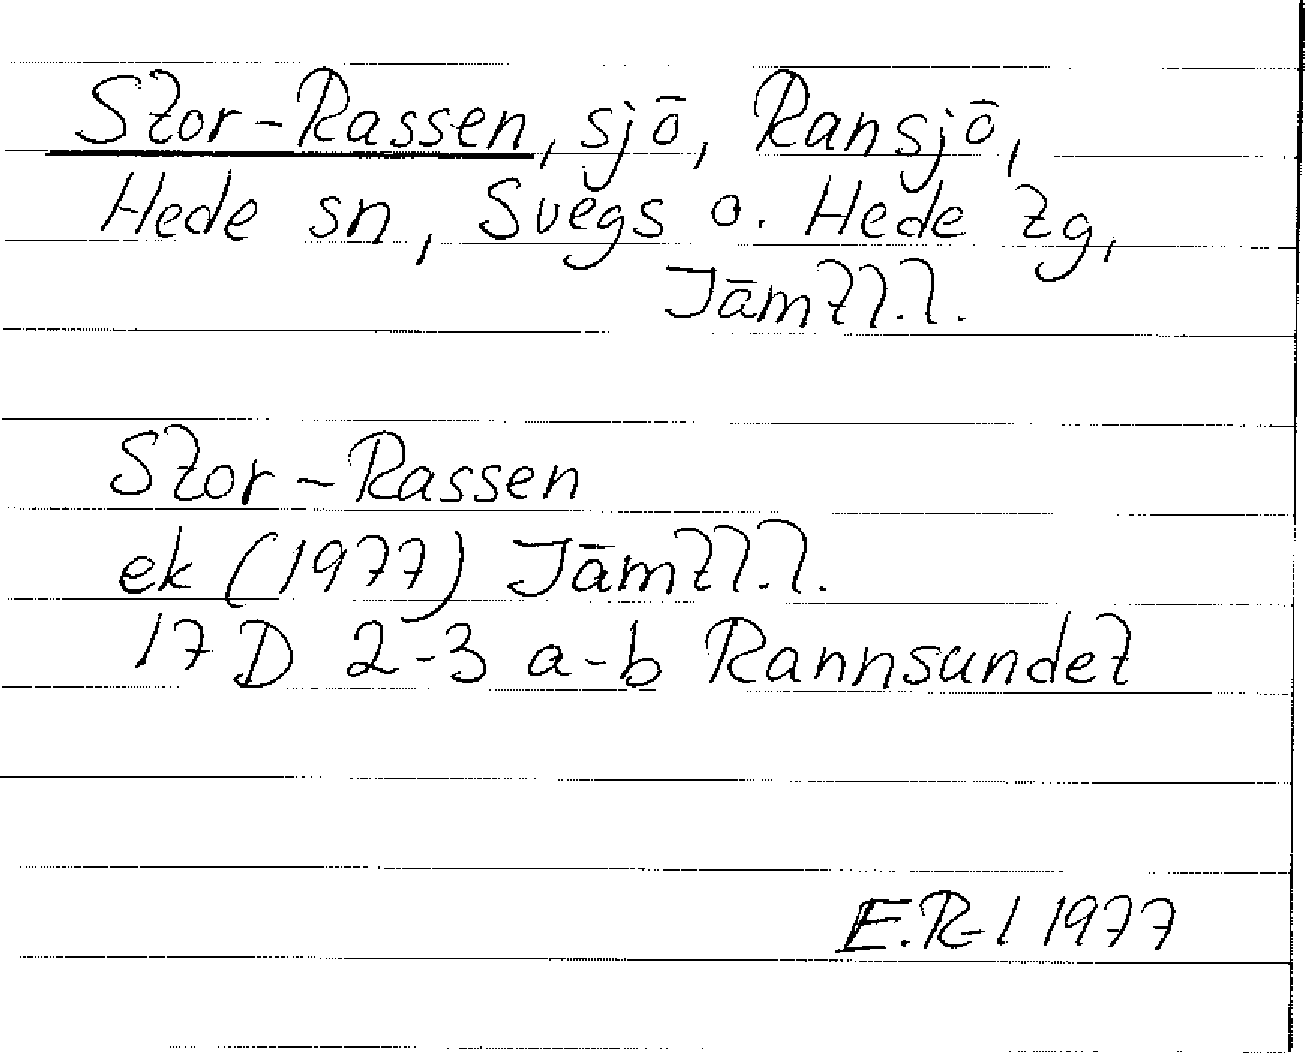 Stor-Rassen, sjö, Ransjö,
Hede sn, Svegs o. Hede tg,
Jämtl.l.
Stor-Rassen
ek (1977) Jämtl.l.
17 D 2-3 a-b Rannsundet
E.R-l 1977